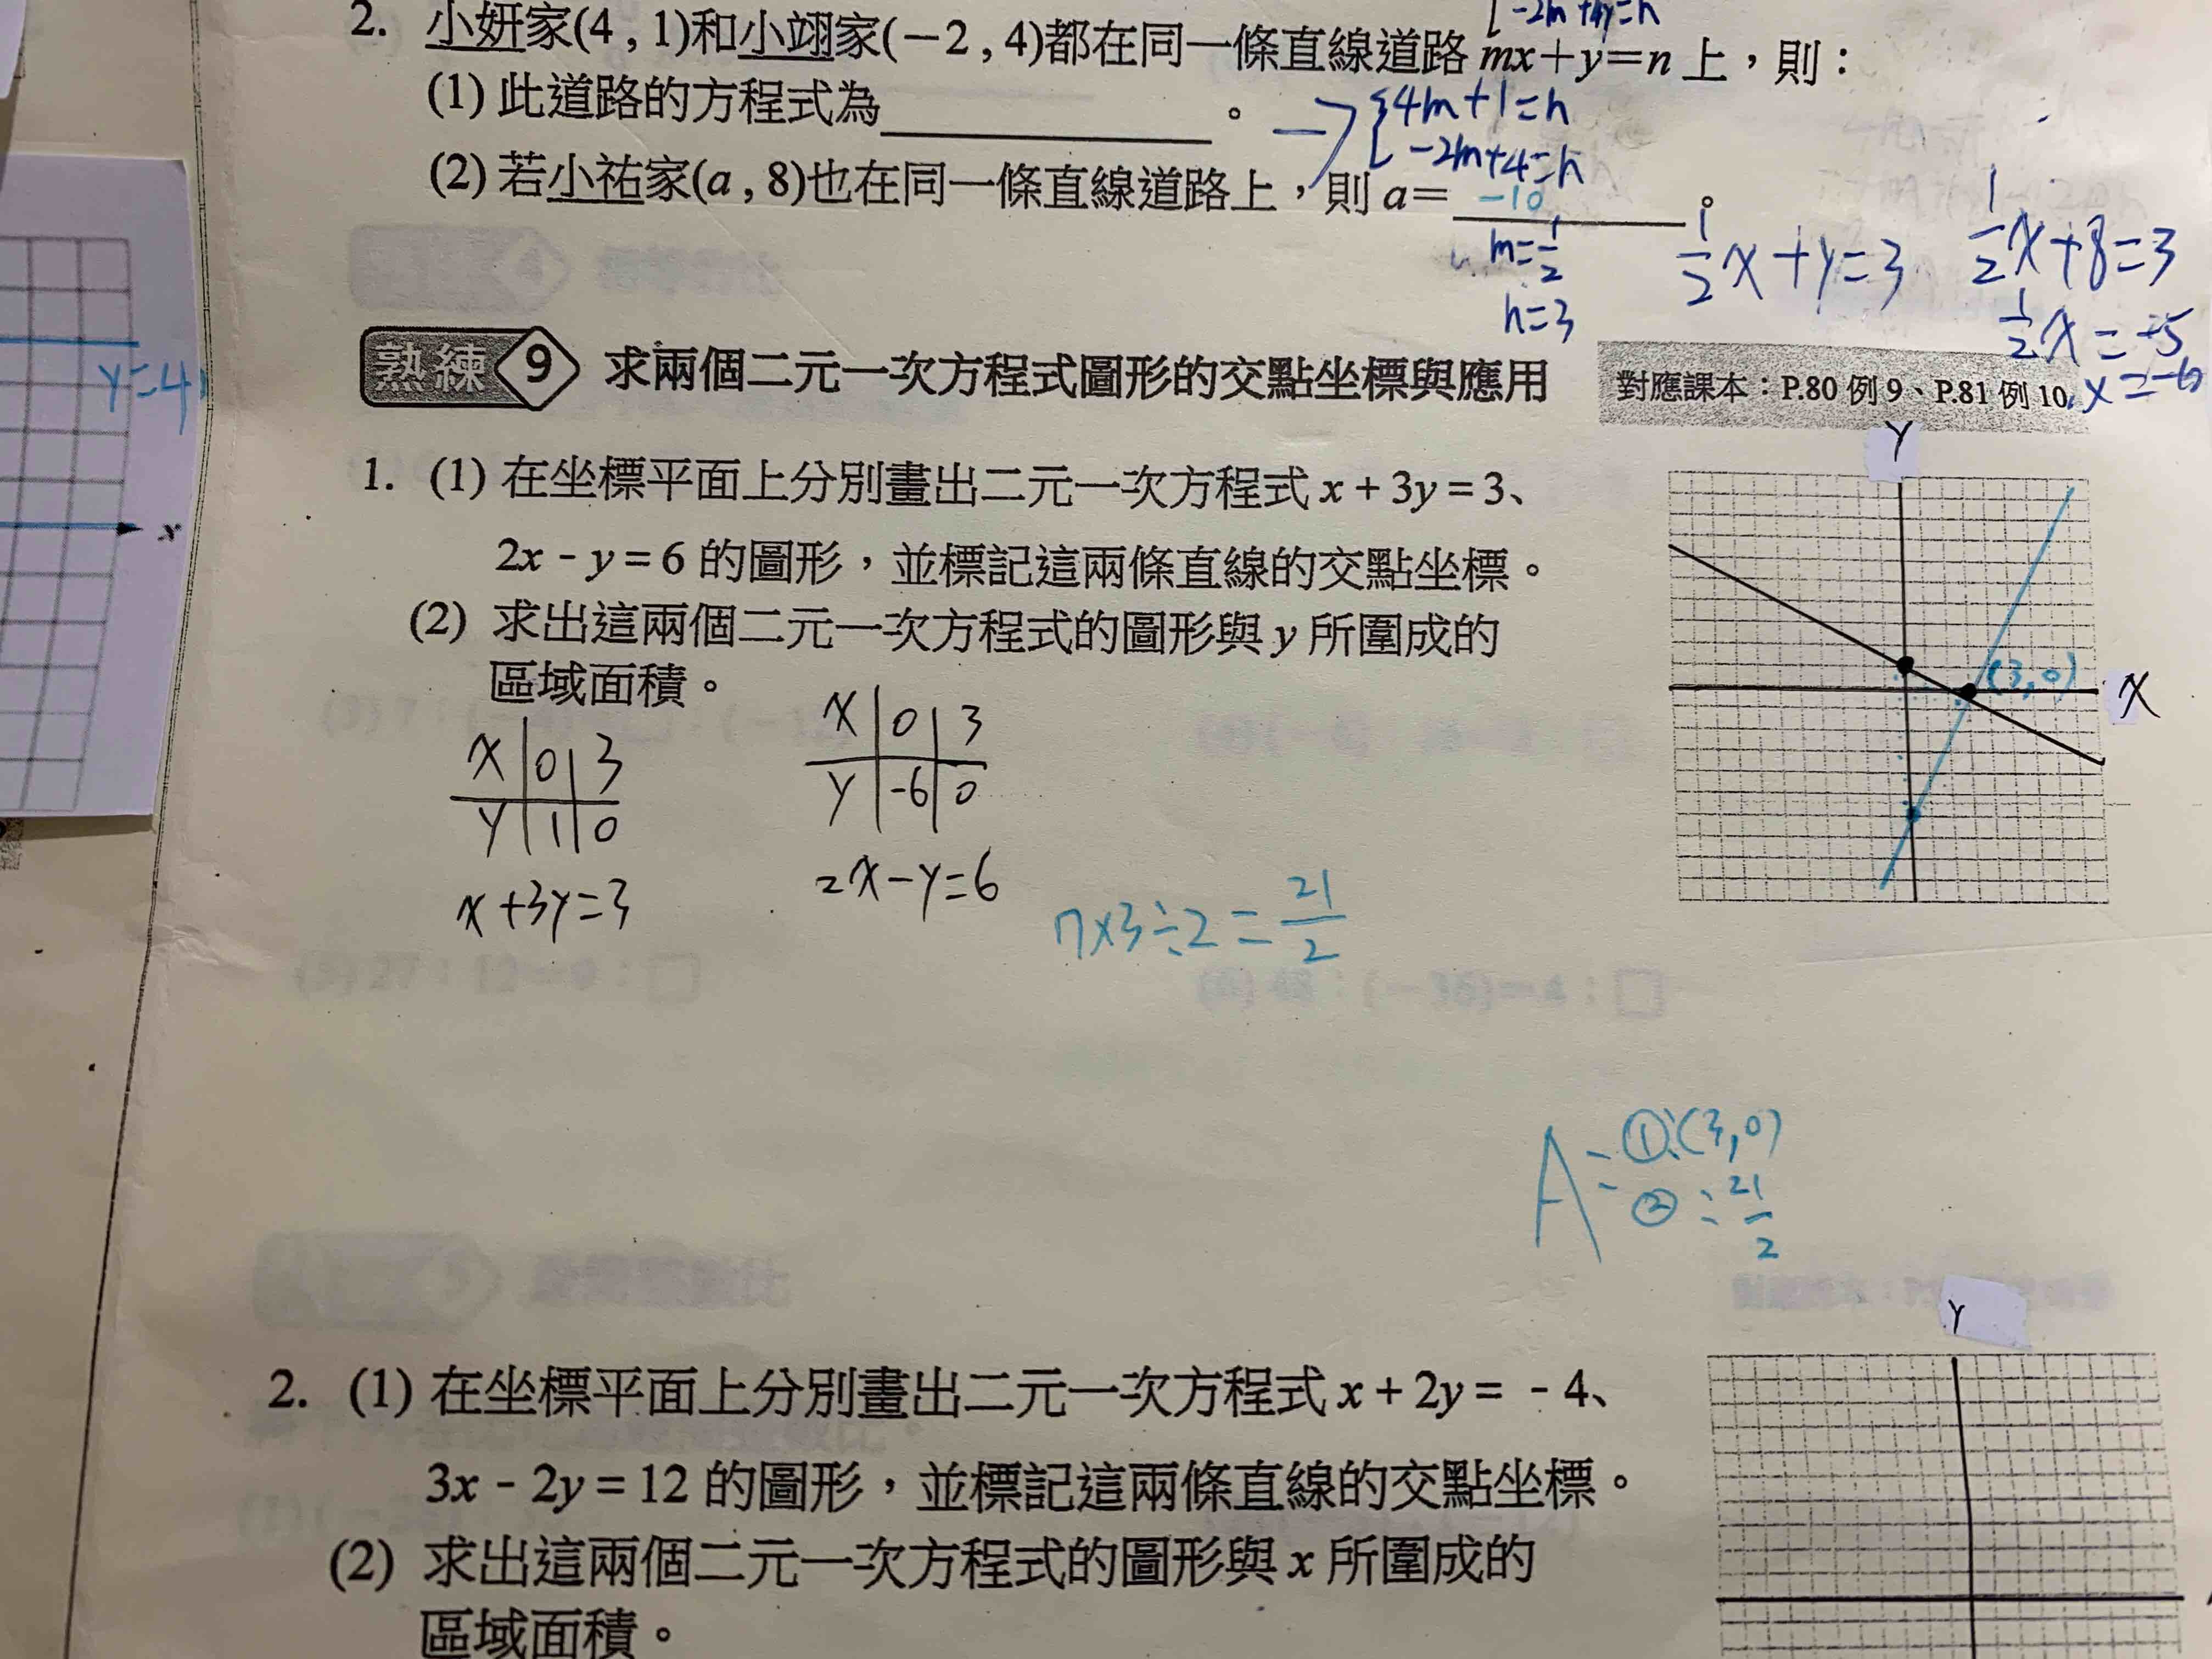 -2m+4y=n
2. 小妍家(4 , 1)和小翊家(－2 , 4)都在同一條直線道路 mx＋y＝n 上，則：
(1) 此道路的方程式為＿＿＿＿＿＿。
→ { 4m+1=n
-2m+4=n
(2) 若小祐家(a , 8)也在同一條直線道路上，則 a＝ -10 。
m=1/2
n=3
1/2x+y=3
1/2x+8=3
1/2x=-5
熟練 9 求兩個二元一次方程式圖形的交點坐標與應用
對應課本：P.80 例 9、P.81 例 10
y=4
x
1. (1) 在坐標平面上分別畫出二元一次方程式 x + 3y = 3、
2x - y = 6 的圖形，並標記這兩條直線的交點坐標。
(2) 求出這兩個二元一次方程式的圖形與 y 所圍成的
區域面積。
Y
(3,0)
X
x 0 3
y 1 0
x+3y=3
x 0 3
y -6 0
2x-y=6
7x3÷2=21/2
A: ①:(3,0)
②:21/2
2. (1) 在坐標平面上分別畫出二元一次方程式 x + 2y = - 4、
3x - 2y = 12 的圖形，並標記這兩條直線的交點坐標。
(2) 求出這兩個二元一次方程式的圖形與 x 所圍成的
區域面積。
Y